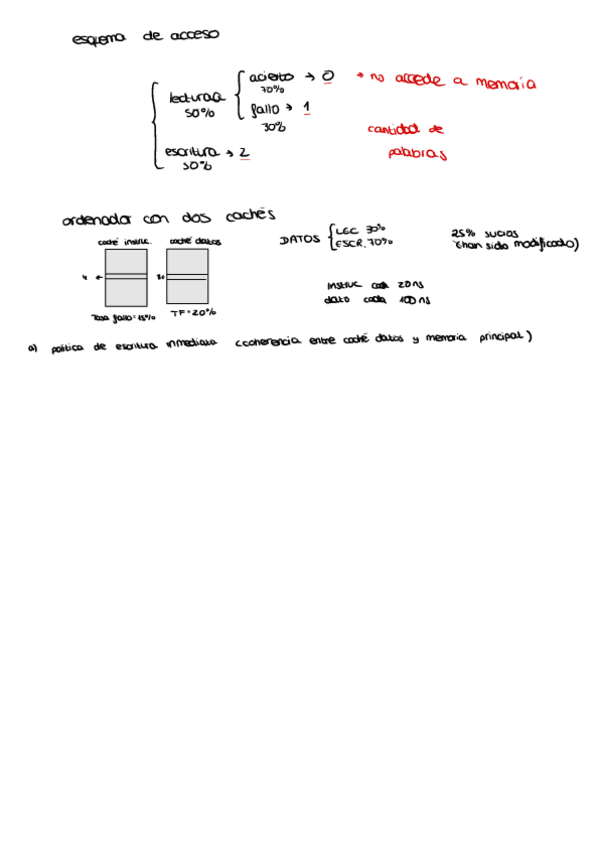 esquema de acceso
lecturaa 50%
acierto → 0 → no accede a memoria
70%
fallo → 1
30%
cantidad de
palabras
escritura → 2
50%
ordenador con dos cachés
caché instruc. caché datos
DATOS LEC 30%
ESCR. 70%
25% sucias
(han sido modificado)
4 ←
Tasa fallo = 15% TF = 20%
instruc cada 20 ns
dato cada 100 ns
a) política de escritura inmediata (coherencia entre caché datos y memoria principal)